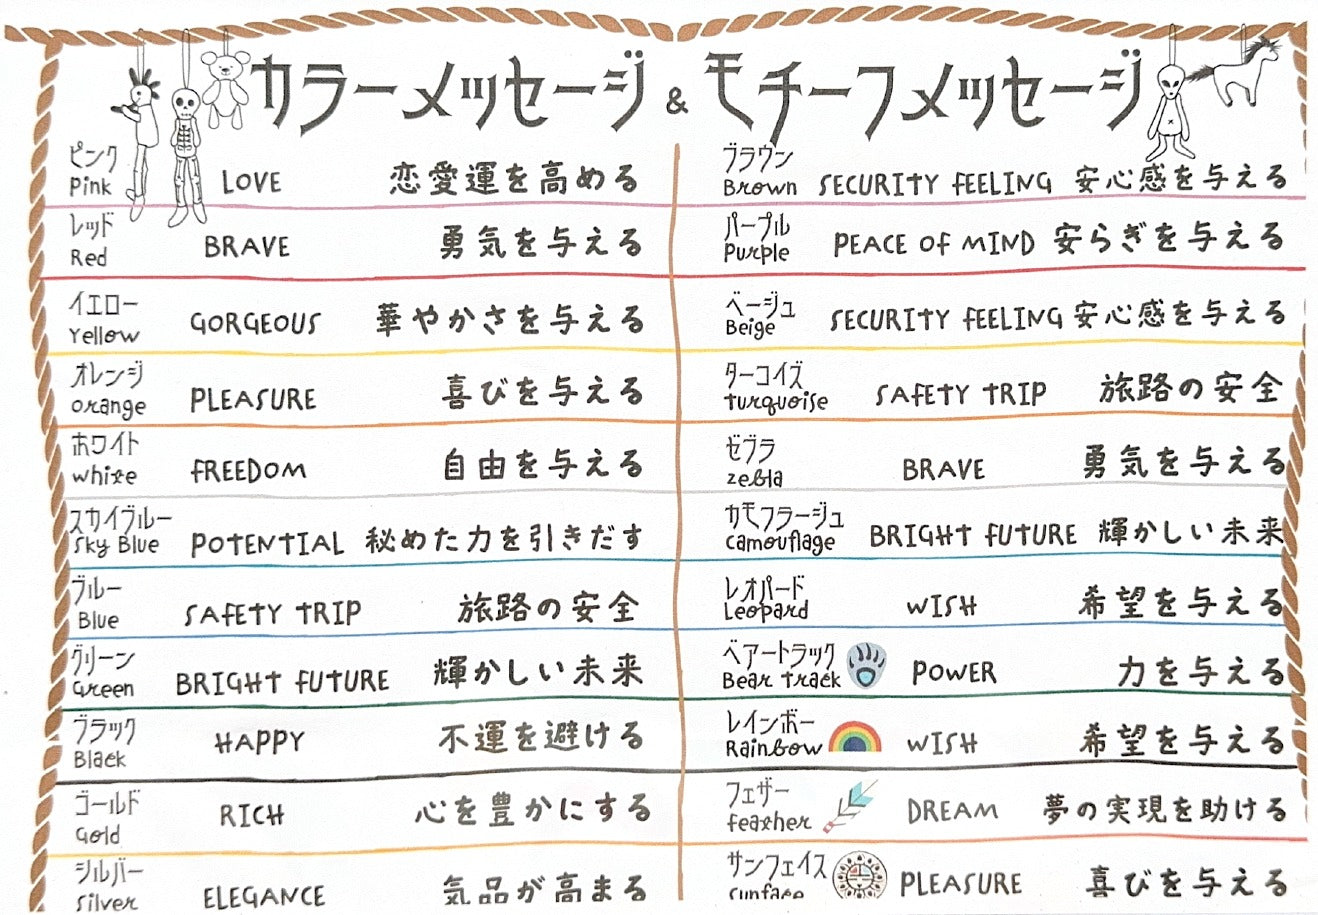 カラーメッセージ & モチーフメッセージ
ピンク
Pink LOVE 恋愛運を高める
レッド
Red BRAVE 勇気を与える
イエロー
Yellow GORGEOUS 華やかさを与える
オレンジ
orange PLEASURE 喜びを与える
ホワイト
white FREEDOM 自由を与える
スカイブルー
Sky Blue POTENTIAL 秘めた力を引きだす
ブルー
Blue SAFETY TRIP 旅路の安全
グリーン
Green BRIGHT FUTURE 輝かしい未来
ブラック
Black HAPPY 不運を避ける
ゴールド
Gold RICH 心を豊かにする
シルバー
Silver ELEGANCE 気品が高まる
ブラウン
Brown SECURITY FEELING 安心感を与える
パープル
Purple PEACE OF MIND 安らぎを与える
ベージュ
Beige SECURITY FEELING 安心感を与える
ターコイズ
turquoise SAFETY TRIP 旅路の安全
ゼブラ
zebla BRAVE 勇気を与える
カモフラージュ
camouflage BRIGHT FUTURE 輝かしい未来
レオパード
Leopard WISH 希望を与える
ベアートラック
Bear track POWER 力を与える
レインボー
Rainbow WISH 希望を与える
フェザー
feather DREAM 夢の実現を助ける
サンフェイス
sunface PLEASURE 喜びを与える